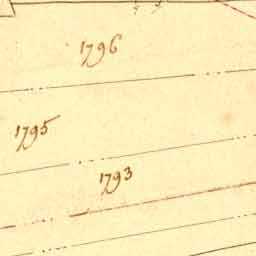 1796
1795
1793